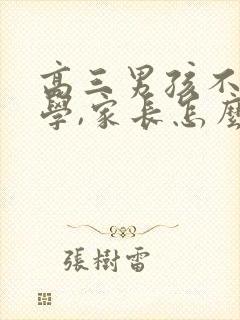 高三男孩不
學,家長怎麼
張樹雷